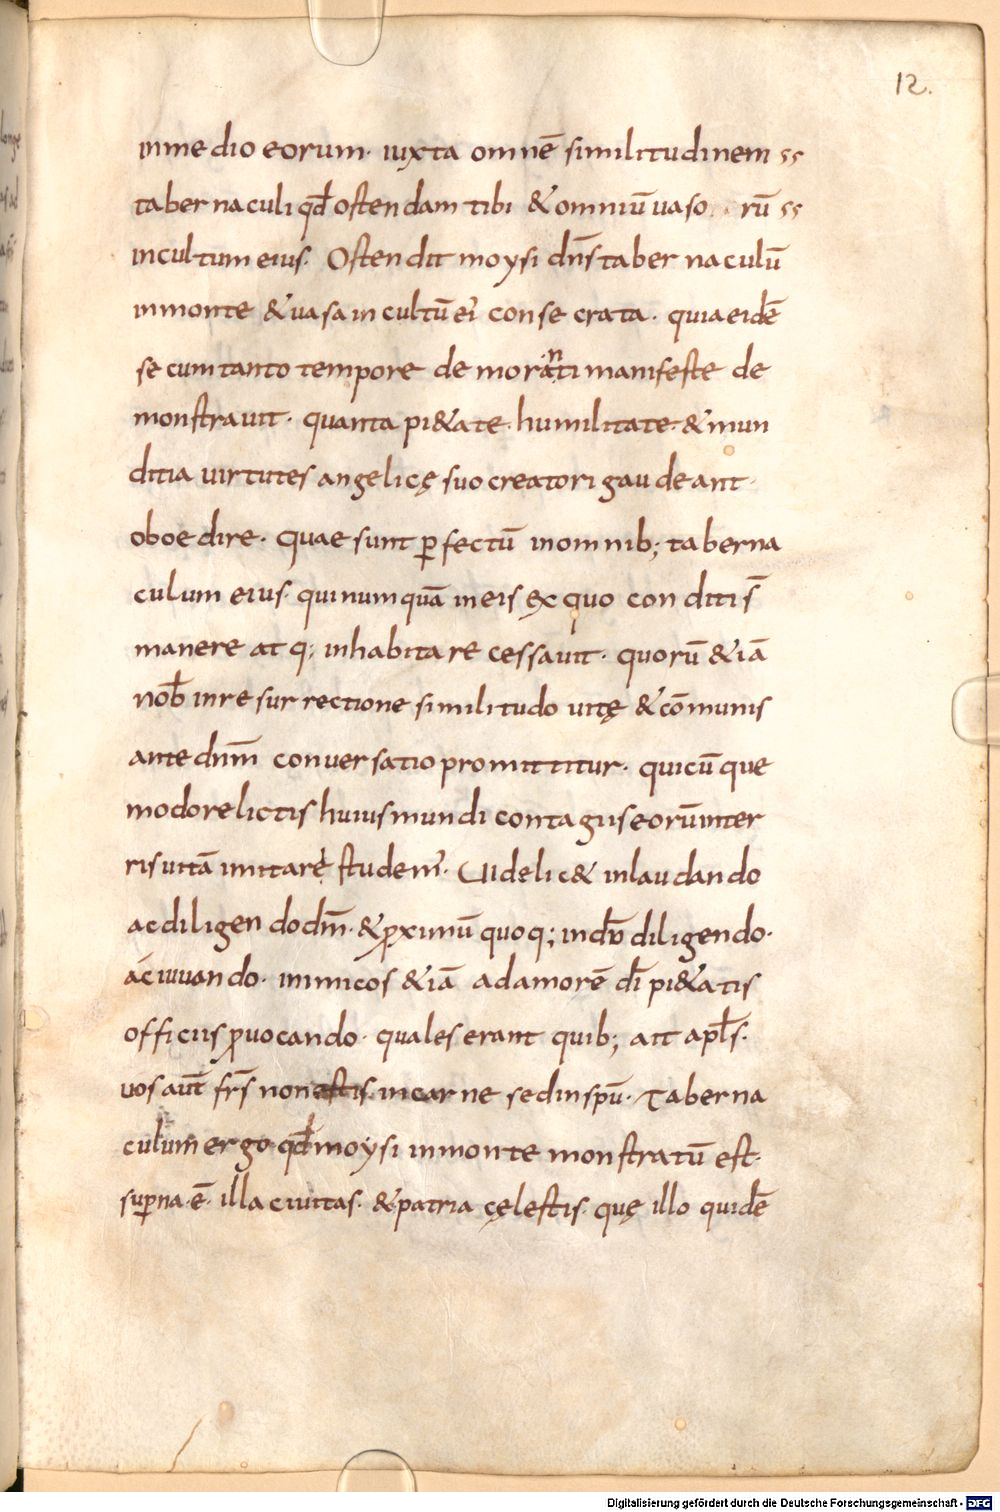 12.
inmedio eorum· iuxta omnē similitudinem ss
tabernaculi qđ ostendam tibi & omniū uaso rū ss
incultum eius· Ostendit moysi dn̄s tabernaculū
inmonte & uasa in cultū ei᾽ consecrata· quia eidē
secum tanto tempore demoranti manifeste de
monstrauit· quanta pi&ate· humilitate· & mun
ditia uirtutes angelicę suo creatori gaudeant·
oboedire· Quae sunt ꝑfectū inomnib; taberna
culum eius· qui numquā in eis ex quo conditi s̄
manere atq; inhabitare cessauit· quorū &iā
nob̄ inresurrectione similitudo uitę & cōmunis
ante dnm̄ conuersatio promittitur· quicūque
modo relictis huius mundi contagiis eorū inter
ris uitā imitare student᾽· Uidelic& inlaudando
ac diligendo dm̄· & ꝓximū quoq; indō diligendo·
ac iuuando· inimicos &iā ad amorē dī pi&atis
officiis ꝓuocando· quales erant quib; ait apłs·
uos aut̄ frs̄ non estis incarne sed inspū· Taberna
culum ergo qđ moysi inmonte monstratū est·
suꝑna· ē· illa ciuitas· & patria cęlestis· quę illo quidē
Digitalisierung gefördert durch die Deutsche Forschungsgemeinschaft - DFG